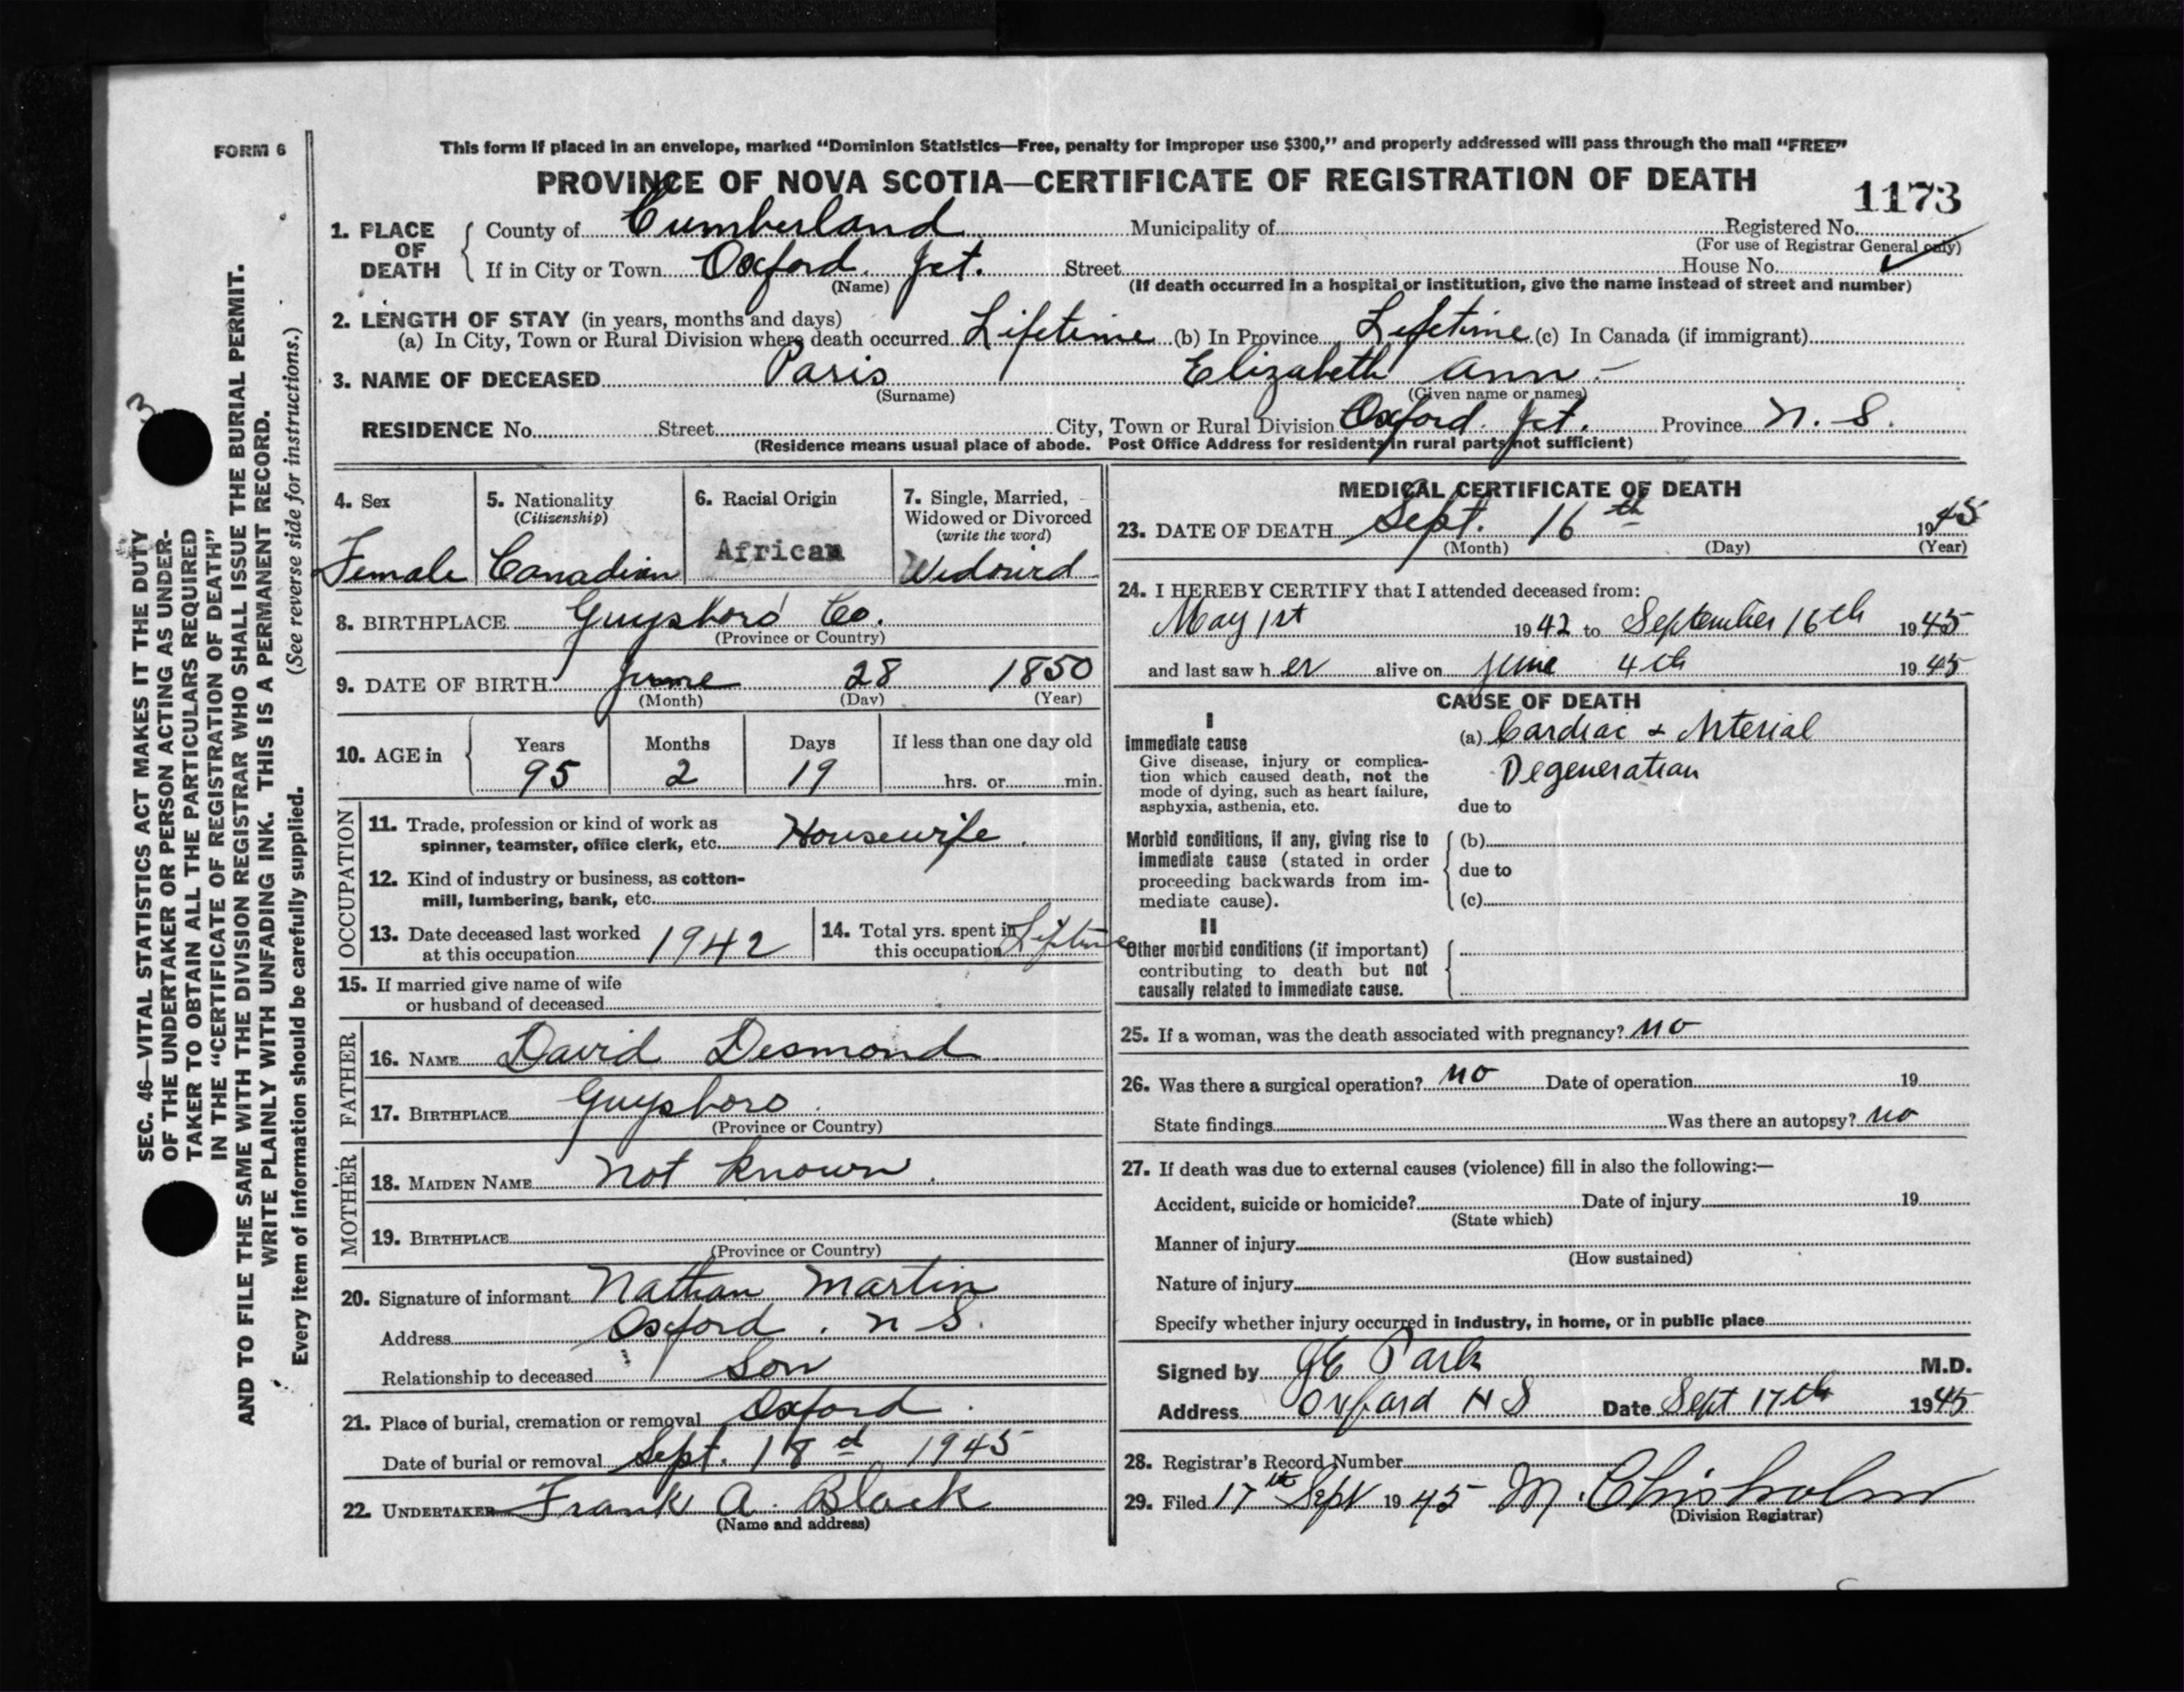 FORM 6
This form if placed in an envelope, marked “Dominion Statistics—Free, penalty for improper use $300,” and properly addressed will pass through the mail “FREE”
PROVINCE OF NOVA SCOTIA—CERTIFICATE OF REGISTRATION OF DEATH
1173
1. PLACE OF DEATH
County of Cumberland Municipality of Registered No.
(For use of Registrar General only)
If in City or Town Oxford Jct. Street House No.
(Name) (If death occurred in a hospital or institution, give the name instead of street and number)
2. LENGTH OF STAY (in years, months and days)
(a) In City, Town or Rural Division where death occurred Lifetime (b) In Province Lifetime (c) In Canada (if immigrant)
3. NAME OF DECEASED Paris Elizabeth Ann
(Surname) (Given name or names)
RESIDENCE No. Street City, Town or Rural Division Oxford Jct. Province N. S.
(Residence means usual place of abode. Post Office Address for residents in rural parts not sufficient)
4. Sex
Female
5. Nationality
(Citizenship)
Canadian
6. Racial Origin
African
7. Single, Married,
Widowed or Divorced
(write the word)
Widowed
8. BIRTHPLACE Guysboro Co.
(Province or Country)
9. DATE OF BIRTH June 28 1850
(Month) (Day) (Year)
10. AGE in
Years Months Days If less than one day old
95 2 19 hrs. or min.
OCCUPATION
11. Trade, profession or kind of work as
spinner, teamster, office clerk, etc. Housewife.
12. Kind of industry or business, as cotton-
mill, lumbering, bank, etc.
13. Date deceased last worked
at this occupation 1942
14. Total yrs. spent in
this occupation Lifetime
15. If married give name of wife
or husband of deceased
FATHER
16. NAME David Desmond
17. BIRTHPLACE Guysboro
(Province or Country)
MOTHER
18. MAIDEN NAME Not known.
19. BIRTHPLACE
(Province or Country)
20. Signature of informant Nathan Martin
Address Oxford. N S.
Relationship to deceased Son
21. Place of burial, cremation or removal Oxford.
Date of burial or removal Sept. 18 d 1945
22. UNDERTAKER Frank A. Black
(Name and address)
MEDICAL CERTIFICATE OF DEATH
23. DATE OF DEATH Sept. 16 th 1945
(Month) (Day) (Year)
24. I HEREBY CERTIFY that I attended deceased from:
May 1st 1942 to September 16th 1945
and last saw h er alive on June 4th 1945
CAUSE OF DEATH
I
Immediate cause
Give disease, injury or complica-
tion which caused death, not the
mode of dying, such as heart failure,
asphyxia, asthenia, etc.
(a) Cardiac & Arterial
Degeneration
due to
Morbid conditions, if any, giving rise to
immediate cause (stated in order
proceeding backwards from im-
mediate cause).
(b)
due to
(c)
II
Other morbid conditions (if important)
contributing to death but not
causally related to immediate cause.
25. If a woman, was the death associated with pregnancy? no
26. Was there a surgical operation? no Date of operation 19
State findings Was there an autopsy? no
27. If death was due to external causes (violence) fill in also the following:—
Accident, suicide or homicide? Date of injury 19
(State which)
Manner of injury
(How sustained)
Nature of injury
Specify whether injury occurred in industry, in home, or in public place
Signed by JE Park M.D.
Address Oxford N S Date Sept 17th 1945
28. Registrar's Record Number
29. Filed 17th Sept 1945 M. Chisholm
(Division Registrar)
3
SEC. 46—VITAL STATISTICS ACT MAKES IT THE DUTY
OF THE UNDERTAKER OR PERSON ACTING AS UNDER-
TAKER TO OBTAIN ALL THE PARTICULARS REQUIRED
IN THE “CERTIFICATE OF REGISTRATION OF DEATH”
AND TO FILE THE SAME WITH THE DIVISION REGISTRAR WHO SHALL ISSUE THE BURIAL PERMIT.
WRITE PLAINLY WITH UNFADING INK. THIS IS A PERMANENT RECORD.
Every item of information should be carefully supplied. (See reverse side for instructions.)